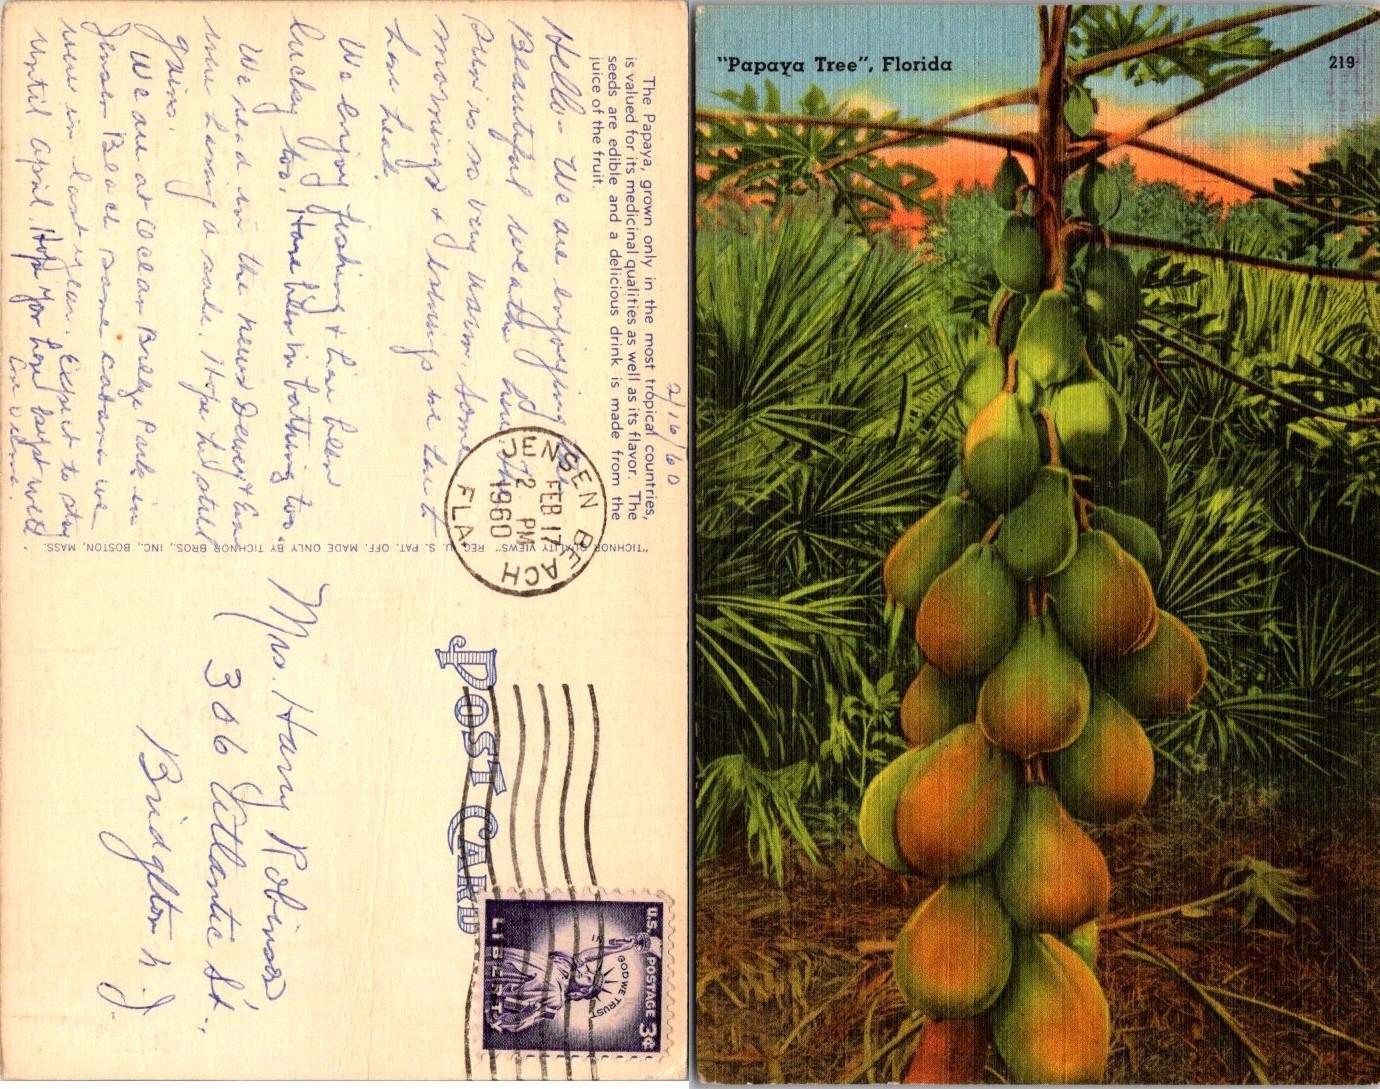 The Papaya, grown only in the most tropical countries,
is valued for its medicinal qualities as well as its flavor. The
seeds are edible and a delicious drink is made from the
juice of the fruit.
2/16/60
Hello - We are enjoying
Beautiful weather here. The
sun is so very warm. Some
mornings & evenings we don't
have heat.
We enjoy fishing &
lucky too. Have been bathing too.
We read in the news Dewey &
were having a sale. Hope he still
gains.
We are at Ocean Breeze Park in
Jensen Beach same cabana we
were in last year. Expect to stay
until April. Hope you have kept well.
JENSEN BEACH
FEB 17
2 PM
1960
FLA.
"TICHNOR QUALITY VIEWS" REG. U. S. PAT. OFF. MADE ONLY BY TICHNOR BROS., INC., BOSTON, MASS.
POST CARD
U.S. POSTAGE 3¢
IN GOD WE TRUST
LIBERTY
Mrs. Harry Robinson
306 Atlantic St.,
Bridgeton N.J.
"Papaya Tree", Florida
219